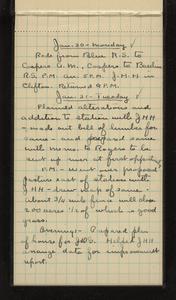 Jan. 30 - Monday
Rode from Blue R.S. to
Cospers A.M., Cospers to Baseline
R.S. P.M. arr. 5 P.M. J.H.H. in
Clifton. Returned 9 P.M.
Jan. 31 - Tuesday
Planned alterations and
addition to station with JHH
- made out bill of lumber for
same - and
with memo. to Rogers to be
sent up river at first opportunity
P.M. - Went over proposed
pasture east of station with
JHH - drew map of same -
about 3/4 mile fence will close
200 acres 1/2 of which is good
grass.
Evening - Prepared plan
of house for JDS. Helped JHH
arrange data for improvement
report.